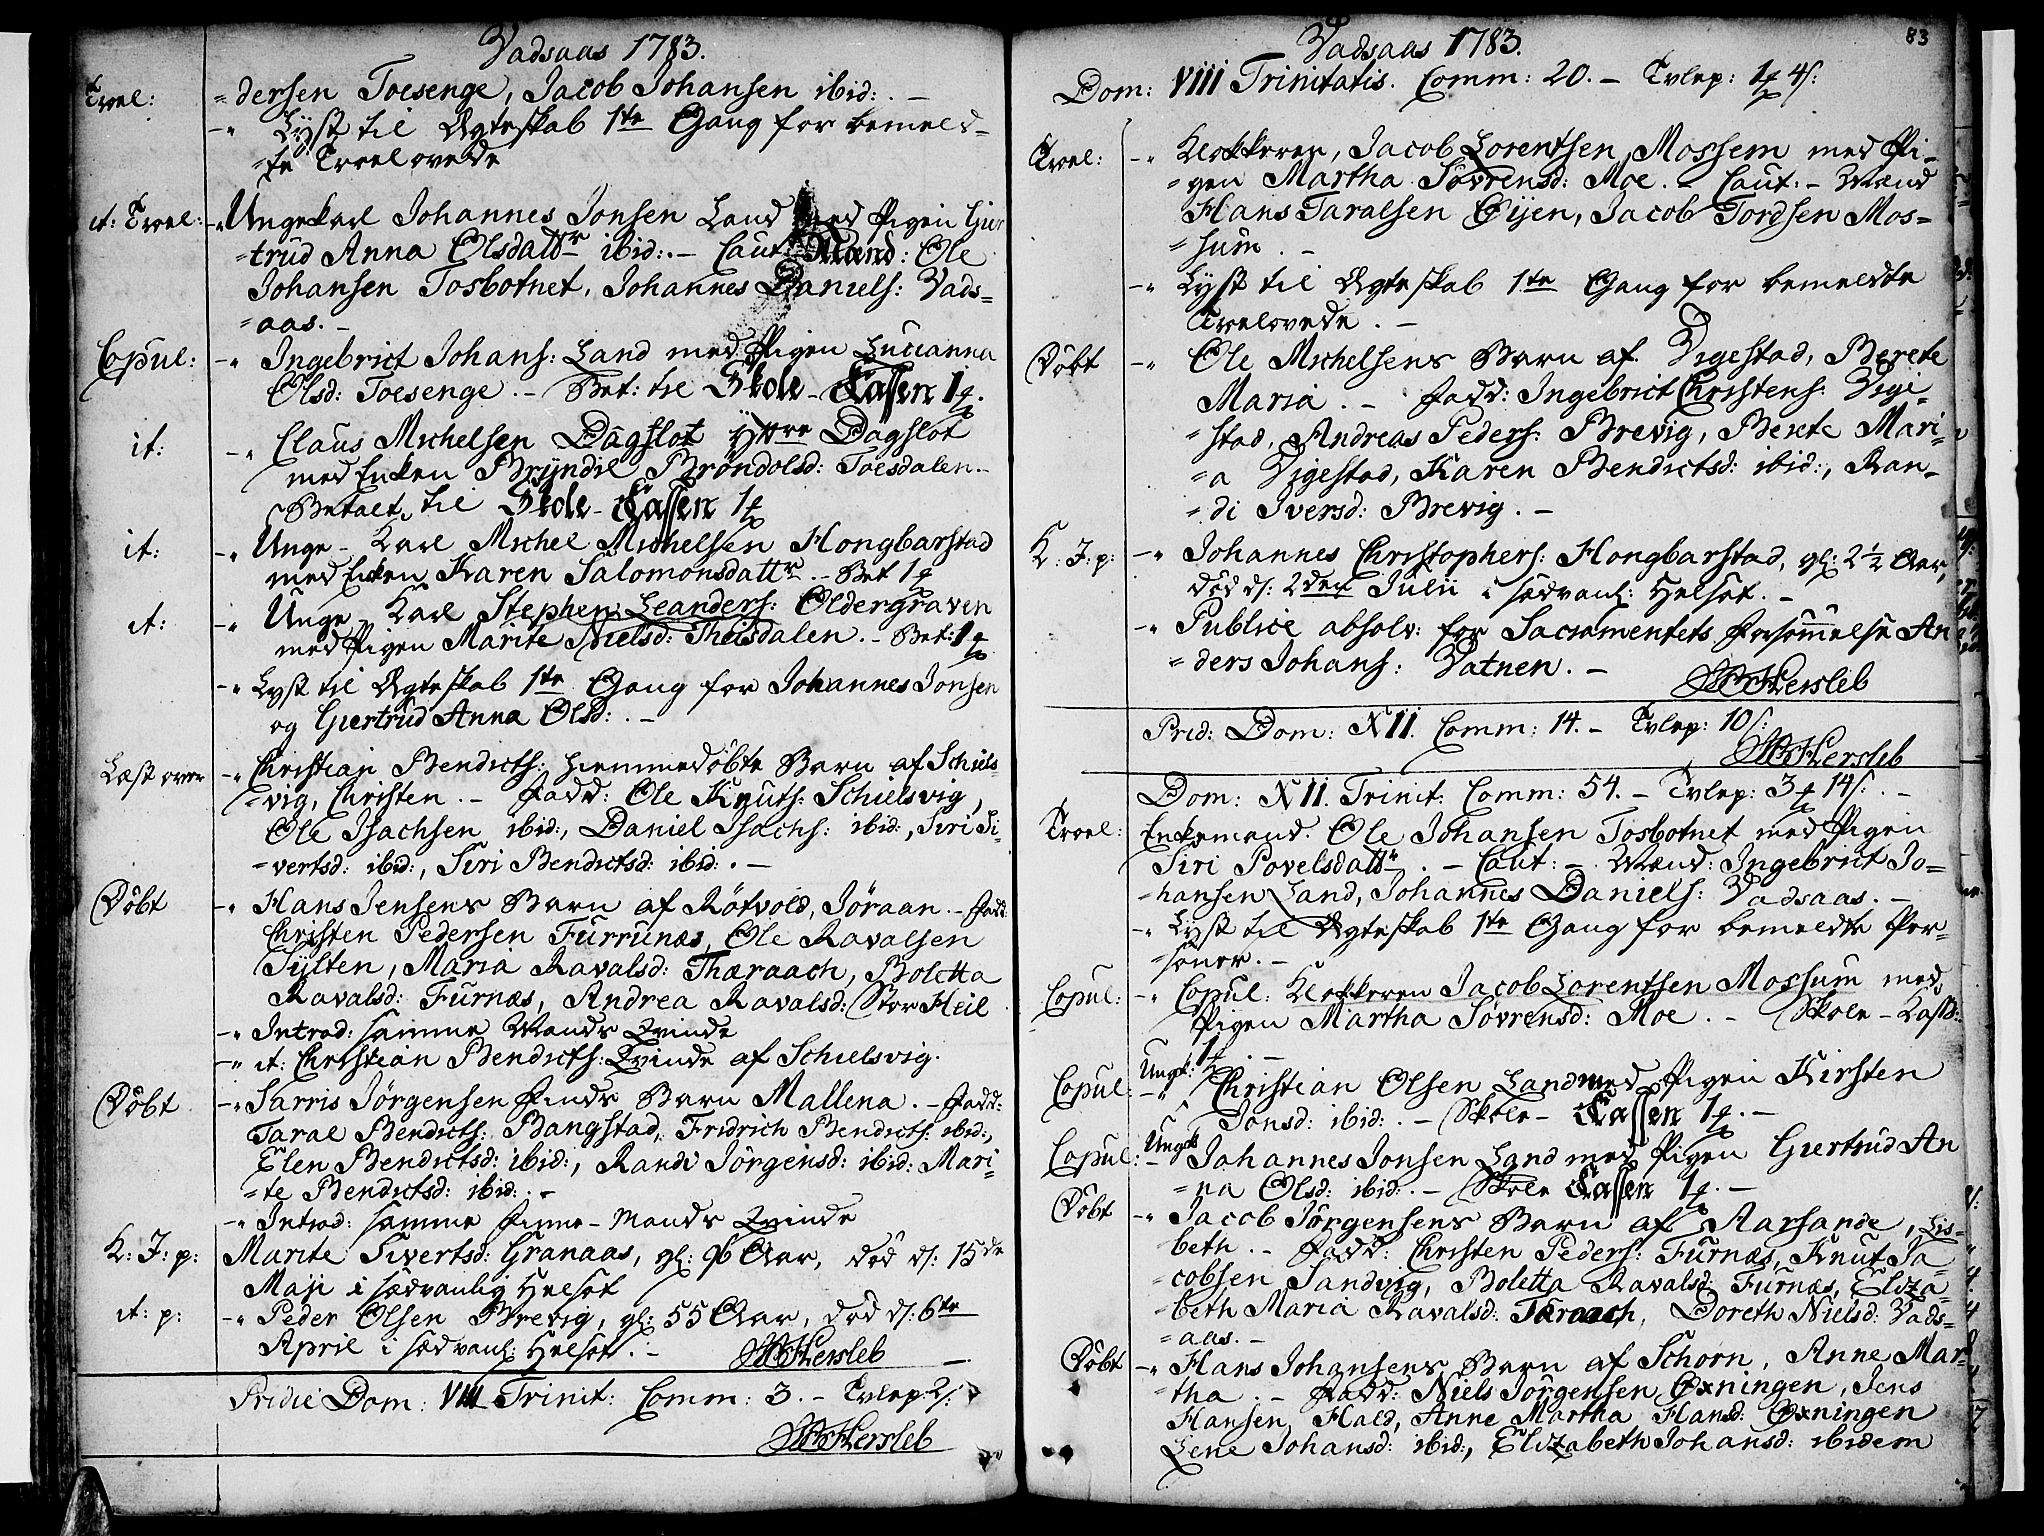 Vadsaas 1783.
Troel: =dersen Toesenge, Jacob Johansen ibid: . –
-" Lyst til Ægteskab 1ste Gang for bemeld=
=te Troelovede
it: Troel: -" Ungekarl Johannes Jonsen Land med Pigen Gier
=trud Anna Olsdattr ibid: . – Caut: Mænd: Ole
Johansen Tosbotnet, Johannes Daniels: Vads=
=aas. –
Copul: -" Ingebrict Johans: Land med Pigen Lucianna
Olsd: Toesenge . – Bet: til Skole-Cassen 1
it: -" Claus Michelsen Dagslot Yttre Dagslot
med Enken Bryndil Bröndolsd: Toesdalen. –
Betalt til Skole-Cassen 1
it: -" Unge-Karl Michel Michelsen Hongbarstad
med Enken Karen Salomonsdattr . – Bet 1
it: -" Unge Karl Stephen Leanders: Oldergraven
med Pigen Marite Niels d: Theisdalen . – Bet: 1
-" Lyst til Ægteskab 1ste Gang for Johannes Jonsen
og Giertrud Anna Olsd: . –
Læst over -" Christian Bendicts: hiemmedöbte Barn af Schiels-
=vig, Christen . – Fadd: Ole Knuts: Schielsvig,
Ole Isachsen ibid:, Daniel Isachs: ibid:, Siri Si=
=vertsd: ibid:, Siri Bendictsd: ibid: . –
Döbt -" Hans Jensens Barn af Rötvold, Jöraan . – Fadd:
Christen Pedersen Furrunæs, Ole Ravalsen
Sylten, Maria Ravalsd: Thæraach, Boletta
Ravalsd: Furnæs, Andrea Ravalsd: Stor Heil
-" Introd: samme Mands Qvinde
-" it: Christian Bendicts: Qvinde af Schielsvig.
Döbt -" Sarris Jörgensen Finds Barn Mallena . – Fadd:
Taral Bendicts: Bangstad, Fridrich Bendicts: ibid:,
Elen Bendictsd: ibid:, Randi Jörgensd: ibid: Mari=
=te Bendictsd: ibid: . –
-" Introd: samme Finne-Mands Qvinde
K: J: p: Marite Sivertsd: Granaas, gl: 96 Aar, död d: 15de
Maji i sædvanlig Helsot
it: p: -" Peder Olsen Brevig, gl: 55 Aar, död d: 6te
April i sædvanl: Helsot . – Hersleb
Pridie Dom: VIII Trinit: Comm: 3. – Tvlep: 2 s:
Hersleb
83
Vadsaas 1783.
Dom: VIII Trinitatis. Comm: 20. – Tvlep: 1 4 s:
Troel: -" Klokkeren, Jacob Lorentsen Mossem med Pi=
=gen Martha Sövrensd: Moe . – Caut: – Mænd
Hans Taralsen Öijen, Jacob Tordsen Mos=
=sum . –
-" Lyst til Ægteskab 1ste Gang for bemeldte
Troelovede . –
Döbt -" Ole Michelsens Barn af Vigestad, Berete
Maria . – Fadd: Ingebrict Christens: Vigi=
=stad, Andreas Peders: Brevig, Berete Mari=
=a Vigestad, Karen Bendictsd: ibid:, Ran=
=di Iversd: Brevig . –
K: J: p: -" Johannes Christophers: Hongbarstad, gl: 2½ Aar,
död d: 2den Julii i sædvanl: Helsot . –
-" Publice absolv: for Sacramentets Forsömmelse An
=ders Johans: Vatnen . –
Hersleb
Prid: Dom: XII. Comm: 14. – Tvlep: 10 s:
Hersleb
Dom: XII. Trinit: Comm: 54. – Tvlep: 3 14 s: . –
Troel: Enkemand Ole Johansen Tosbotnet med Pigen
Siri Povelsdattr . – Caut: – Mænd: Ingebrict Jo=
=hansen Land, Johannes Daniels: Vadsaas. –
-" Lyst til Ægteskab 1ste Gang for bemeldte Per=
=soner. –
Copul: -" Copul: Klokkeren Jacob Lorentsen Mossum med
Pigen Martha Sövrensd: Moe . – Skole-Kass:
1 . –
Copul: -" Ungk: Christian Olsen Land med Pigen Kirsten
Jonsd: ibid: . – Skole-Cassen 1 . –
Copul: – Ungk Johannes Jonsen Land med Pigen Giertrud An
=na Olsd: ibid: . – Skole Cassen 1 . –
Döbt -" Jacob Jörgensens Barn af Aarsande, Lis=
beth . – Fadd: Christen Peders: Furnæs, Knut Ja=
=cobsen Sandvig, Boletta Ravalsd: Furnæs, Eliza=
=beth Maria Ravalsd: Taraach, Doreth Nielsd: Vads=
=aas. –
Döbt -" Hans Johansens Barn af Schorn, Anne Mar=
=tha . – Fadd: Niels Jörgensen Öxningen, Jens
Hansen Hald, Anne Martha Hansd: Öxningen
Lene Johansd: ibid:, Elizabeth Johansd: ibidem